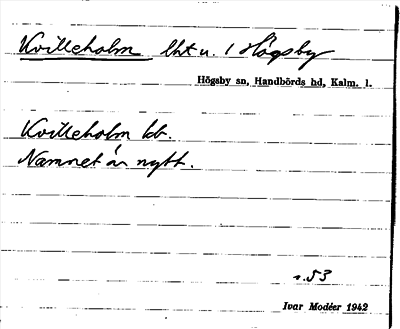 Kvilleholm lht u. 1 Högsby
Högsby sn, Handbörds hd, Kalm. l.
Kvilleholm
Namnet är nytt.
s. 53
Ivar Modéer 1942